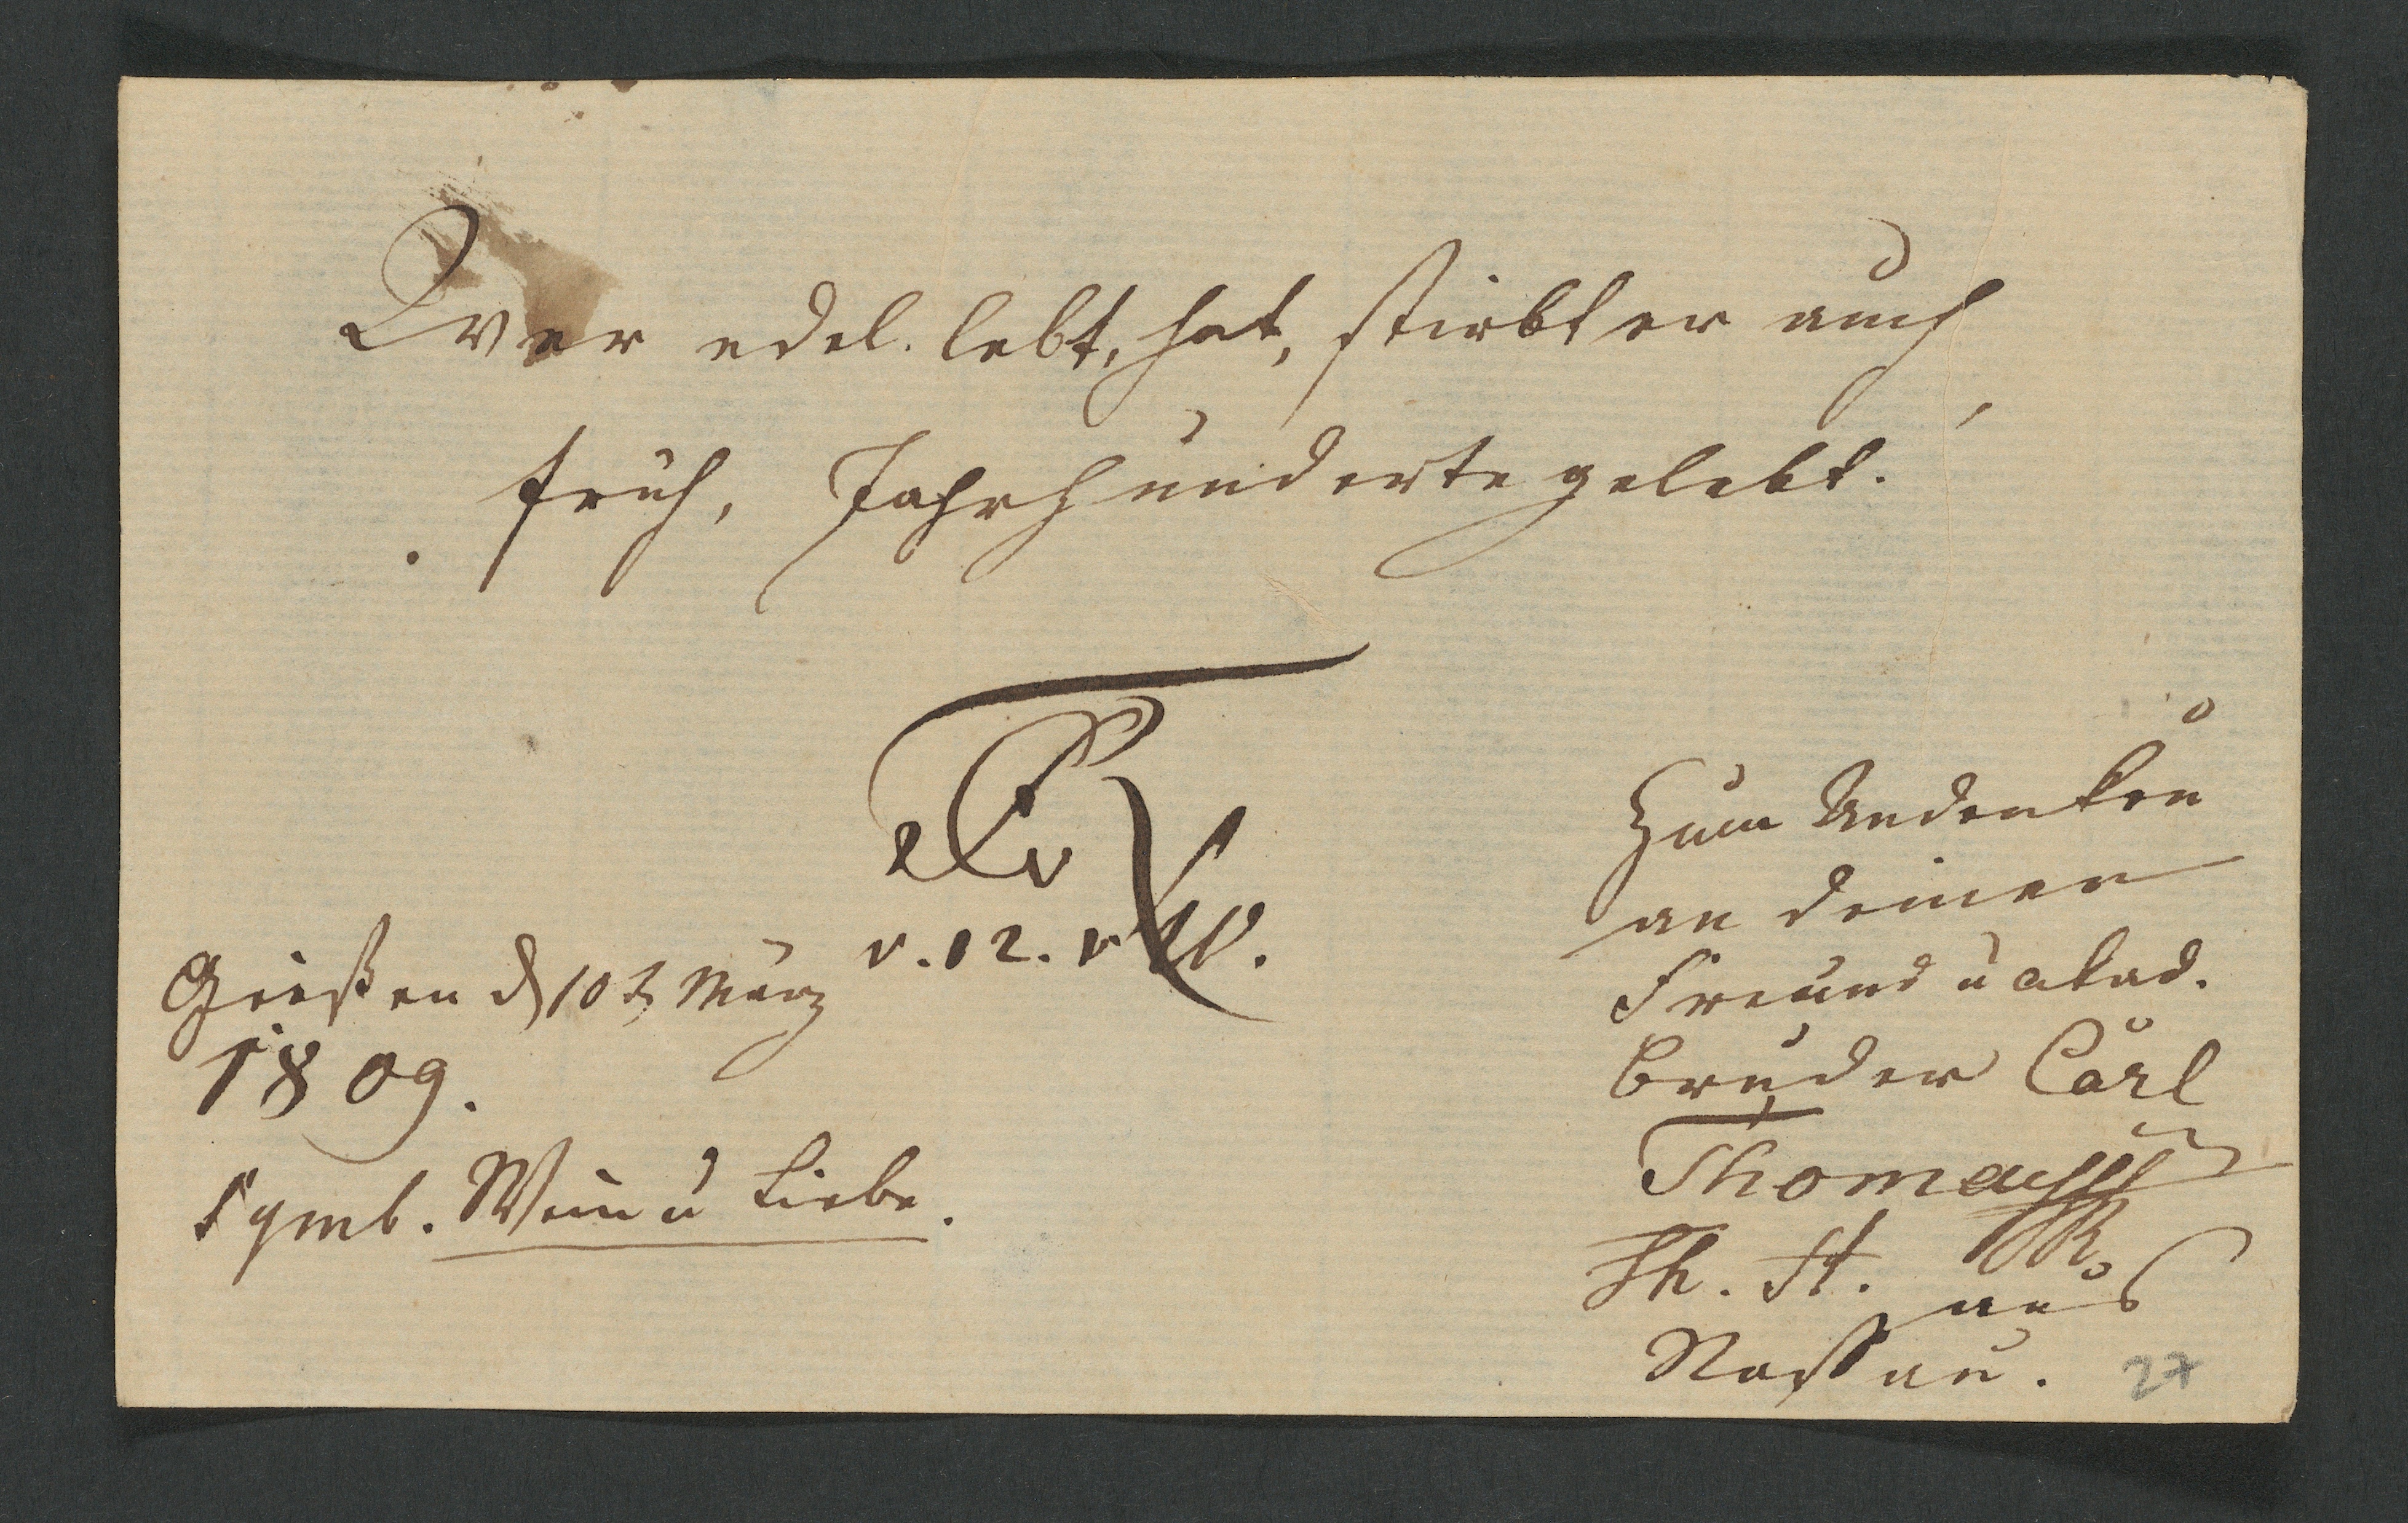 Wer edel. lebt, hat, stirbt er auch
früh, Jahrhunderte gelebt.
Gießen d 10t März
1809.
Symb. Wein u Liebe.
v. 12.
Zum Andenken
an deinen
Freund u akad.
Bruder Carl
Thomas
Th. St.
aus
Nassau.
27